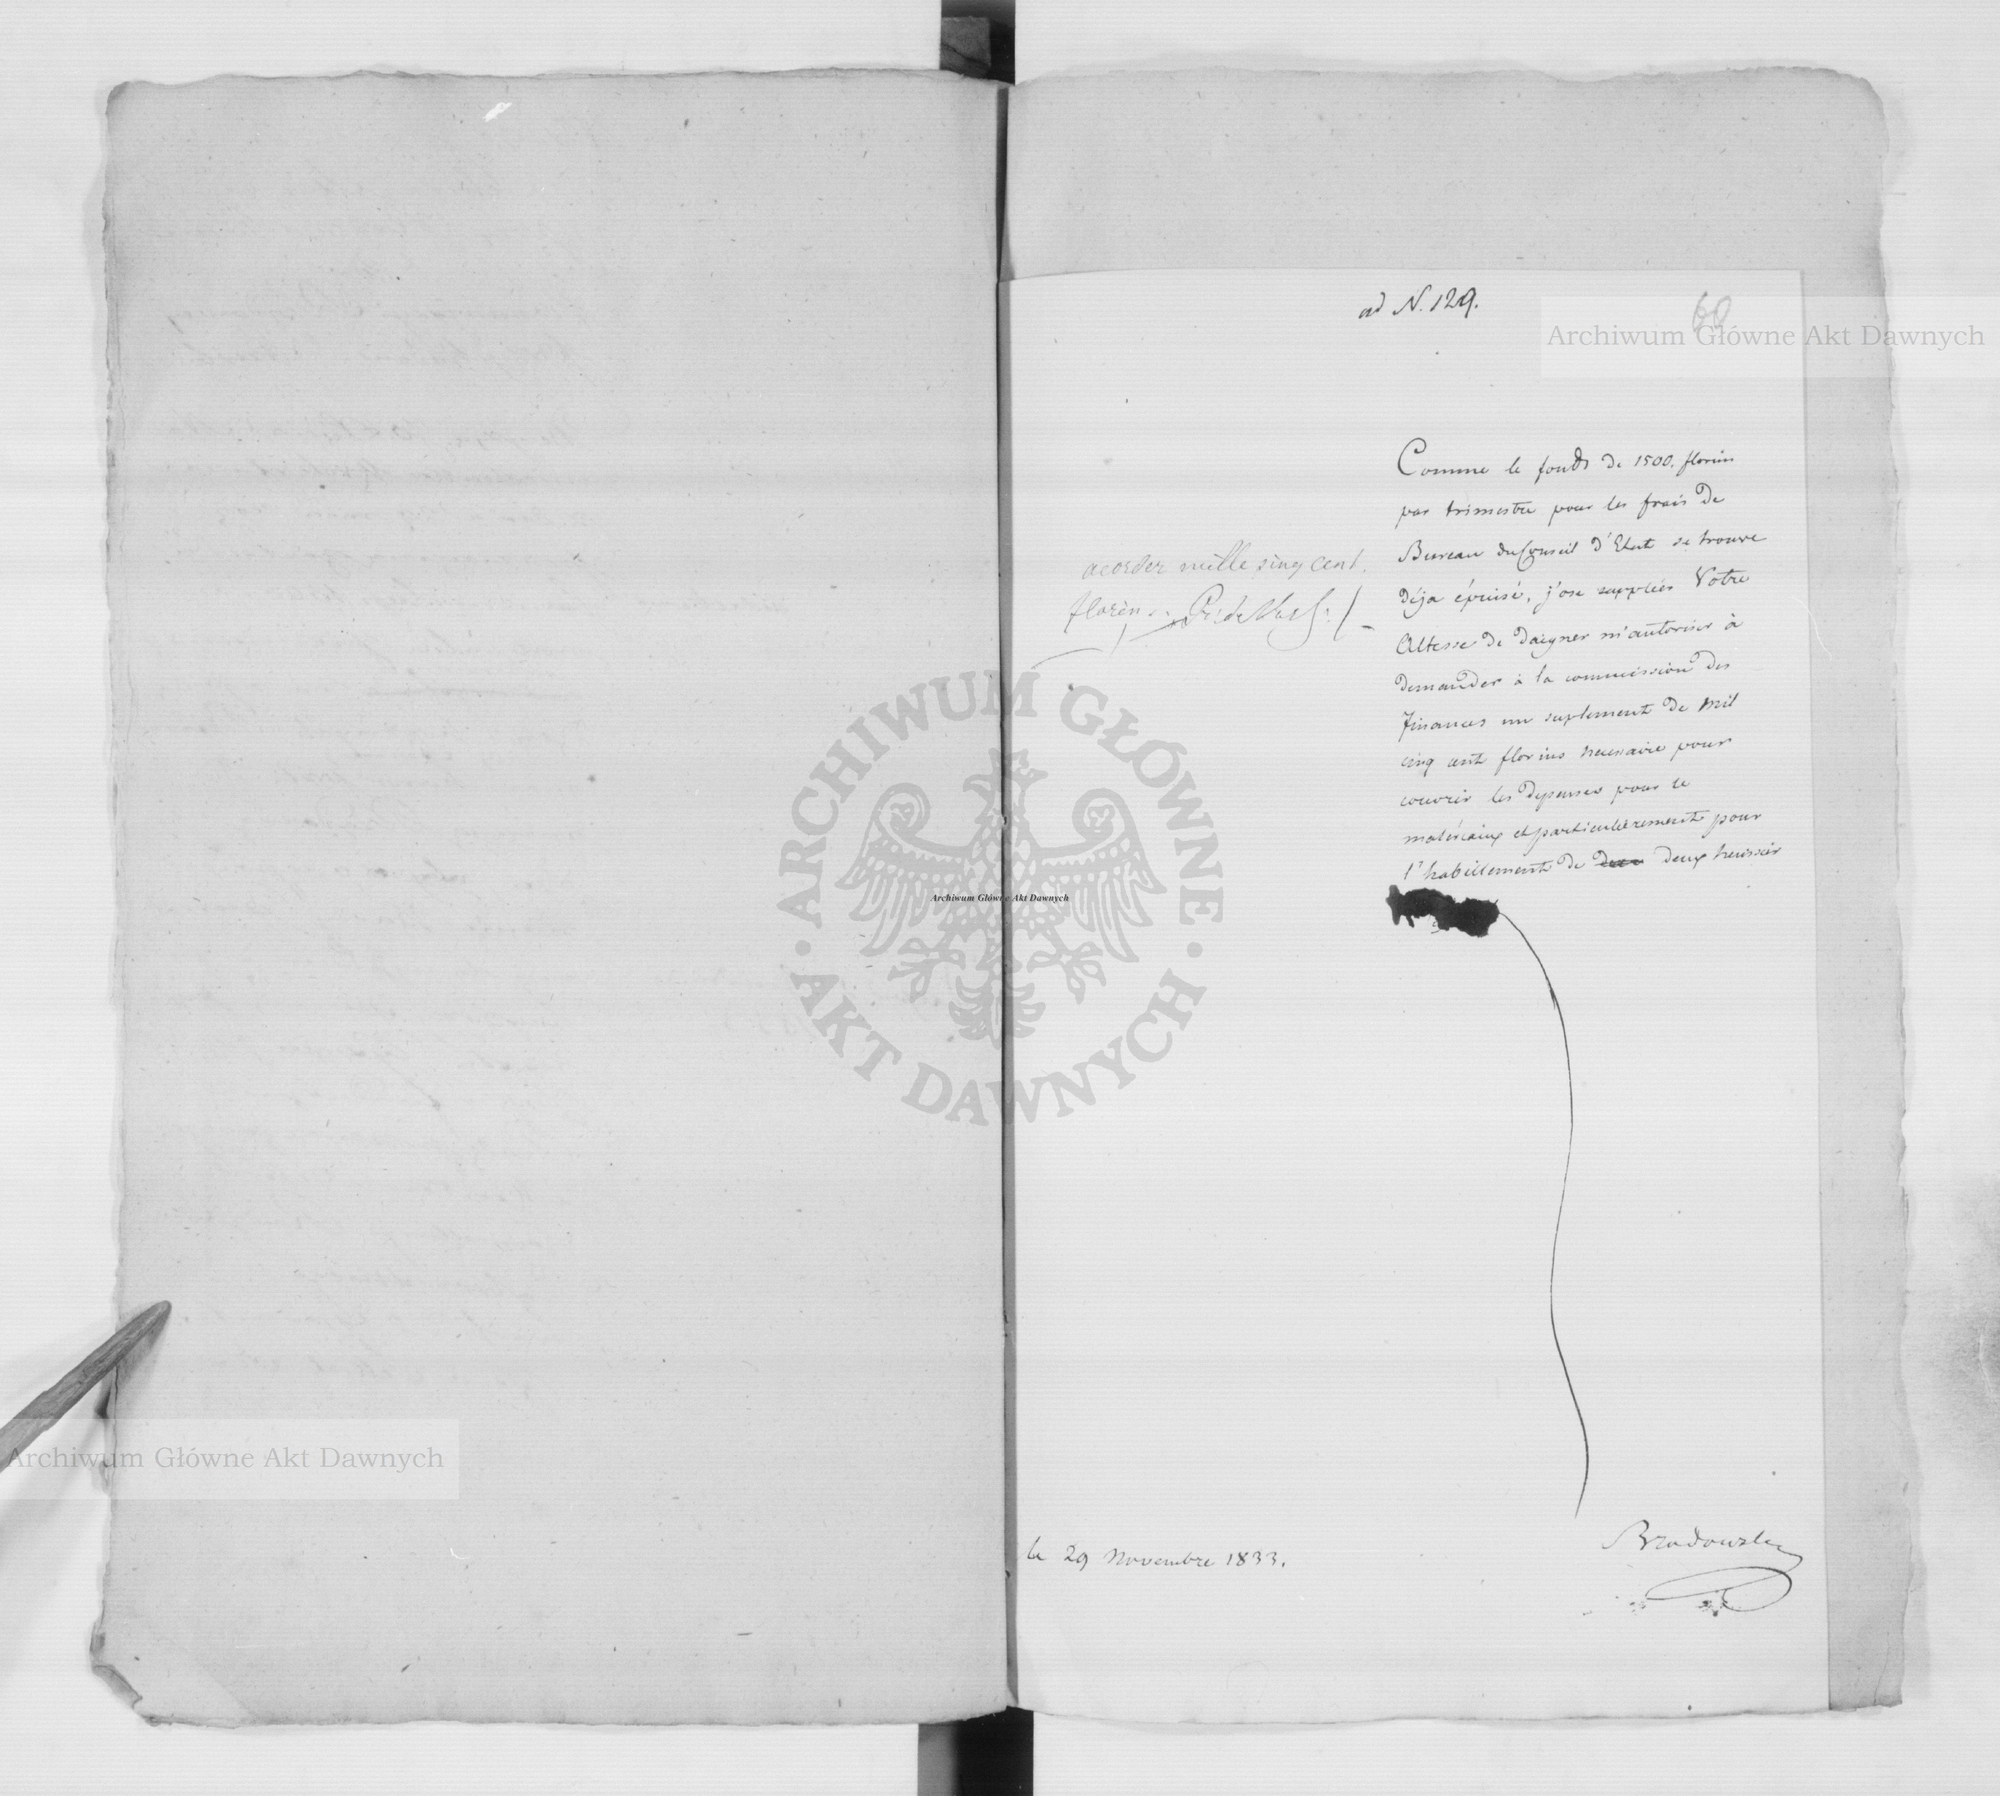 ad N. 129.
60
Comme le fonds de 1500. florins
par trimestre pour les frais de
Bureau du Conseil d'Etat se trouve
déja épuisé, j'ose supplier Votre
Altesse de daigner m'autoriser à
demander à la commission des
finances un suplement de mil
cinq cent florins necessaire pour
couvrir les depenses pour le
matériaux et particulièrement pour
l'habillement de deux huissier
acorder mille sinq cent.
florins
le 29 Novembre 1833.
Archiwum Główne Akt Dawnych
ARCHIWUM GŁÓWNE
AKT DAWNYCH
Archiwum Główne Akt Dawnych
Archiwum Główne Akt Dawnych